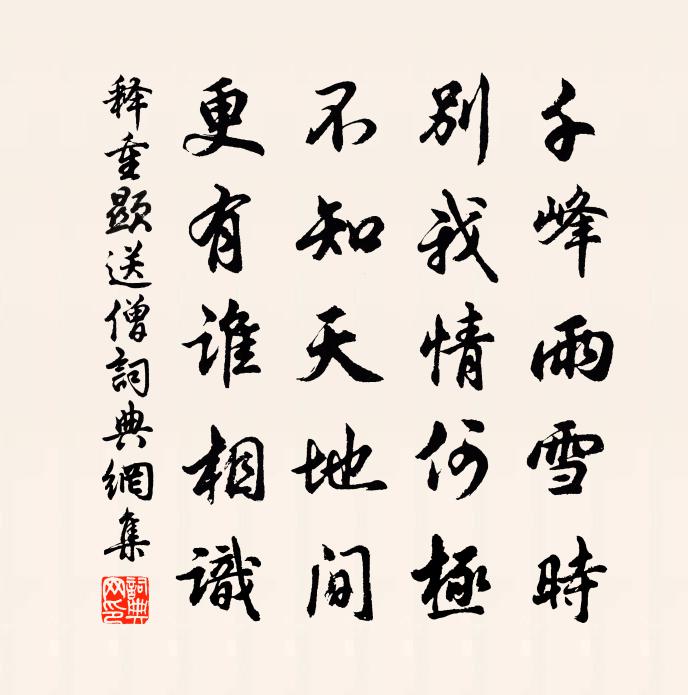 千峰雨雪時
別我情何極
不知天地间
更有谁相識
释重顯送僧詞典網集
詞典網印